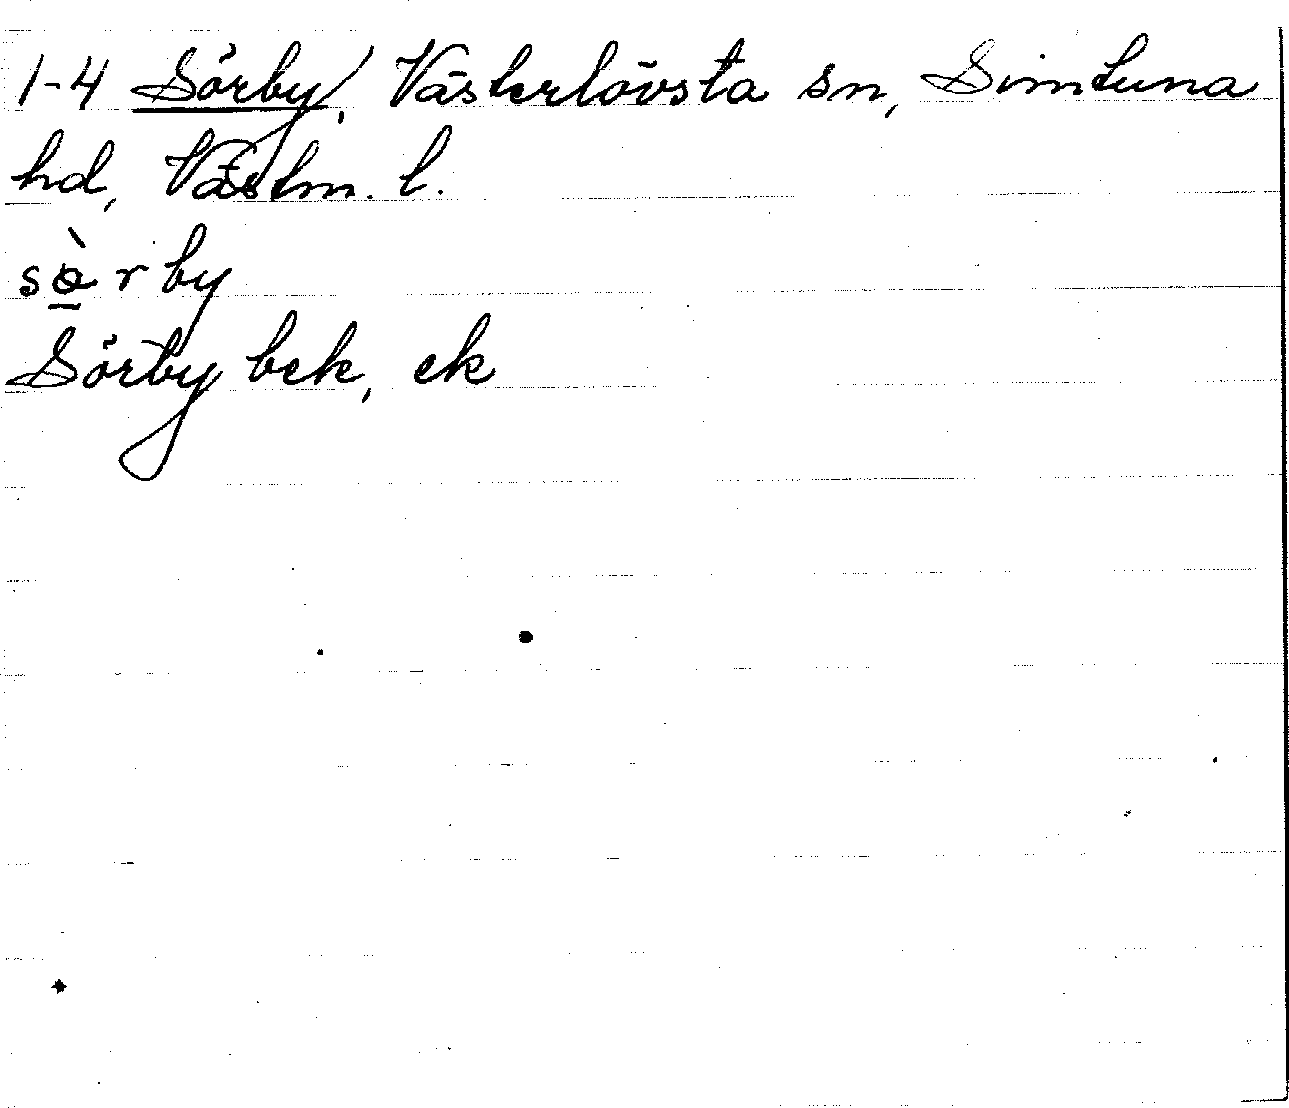 1-4 Sörby, Västerlövsta sn, Simtuna
hd, Västm. l.
sö̀rby
Sörby bek, ek